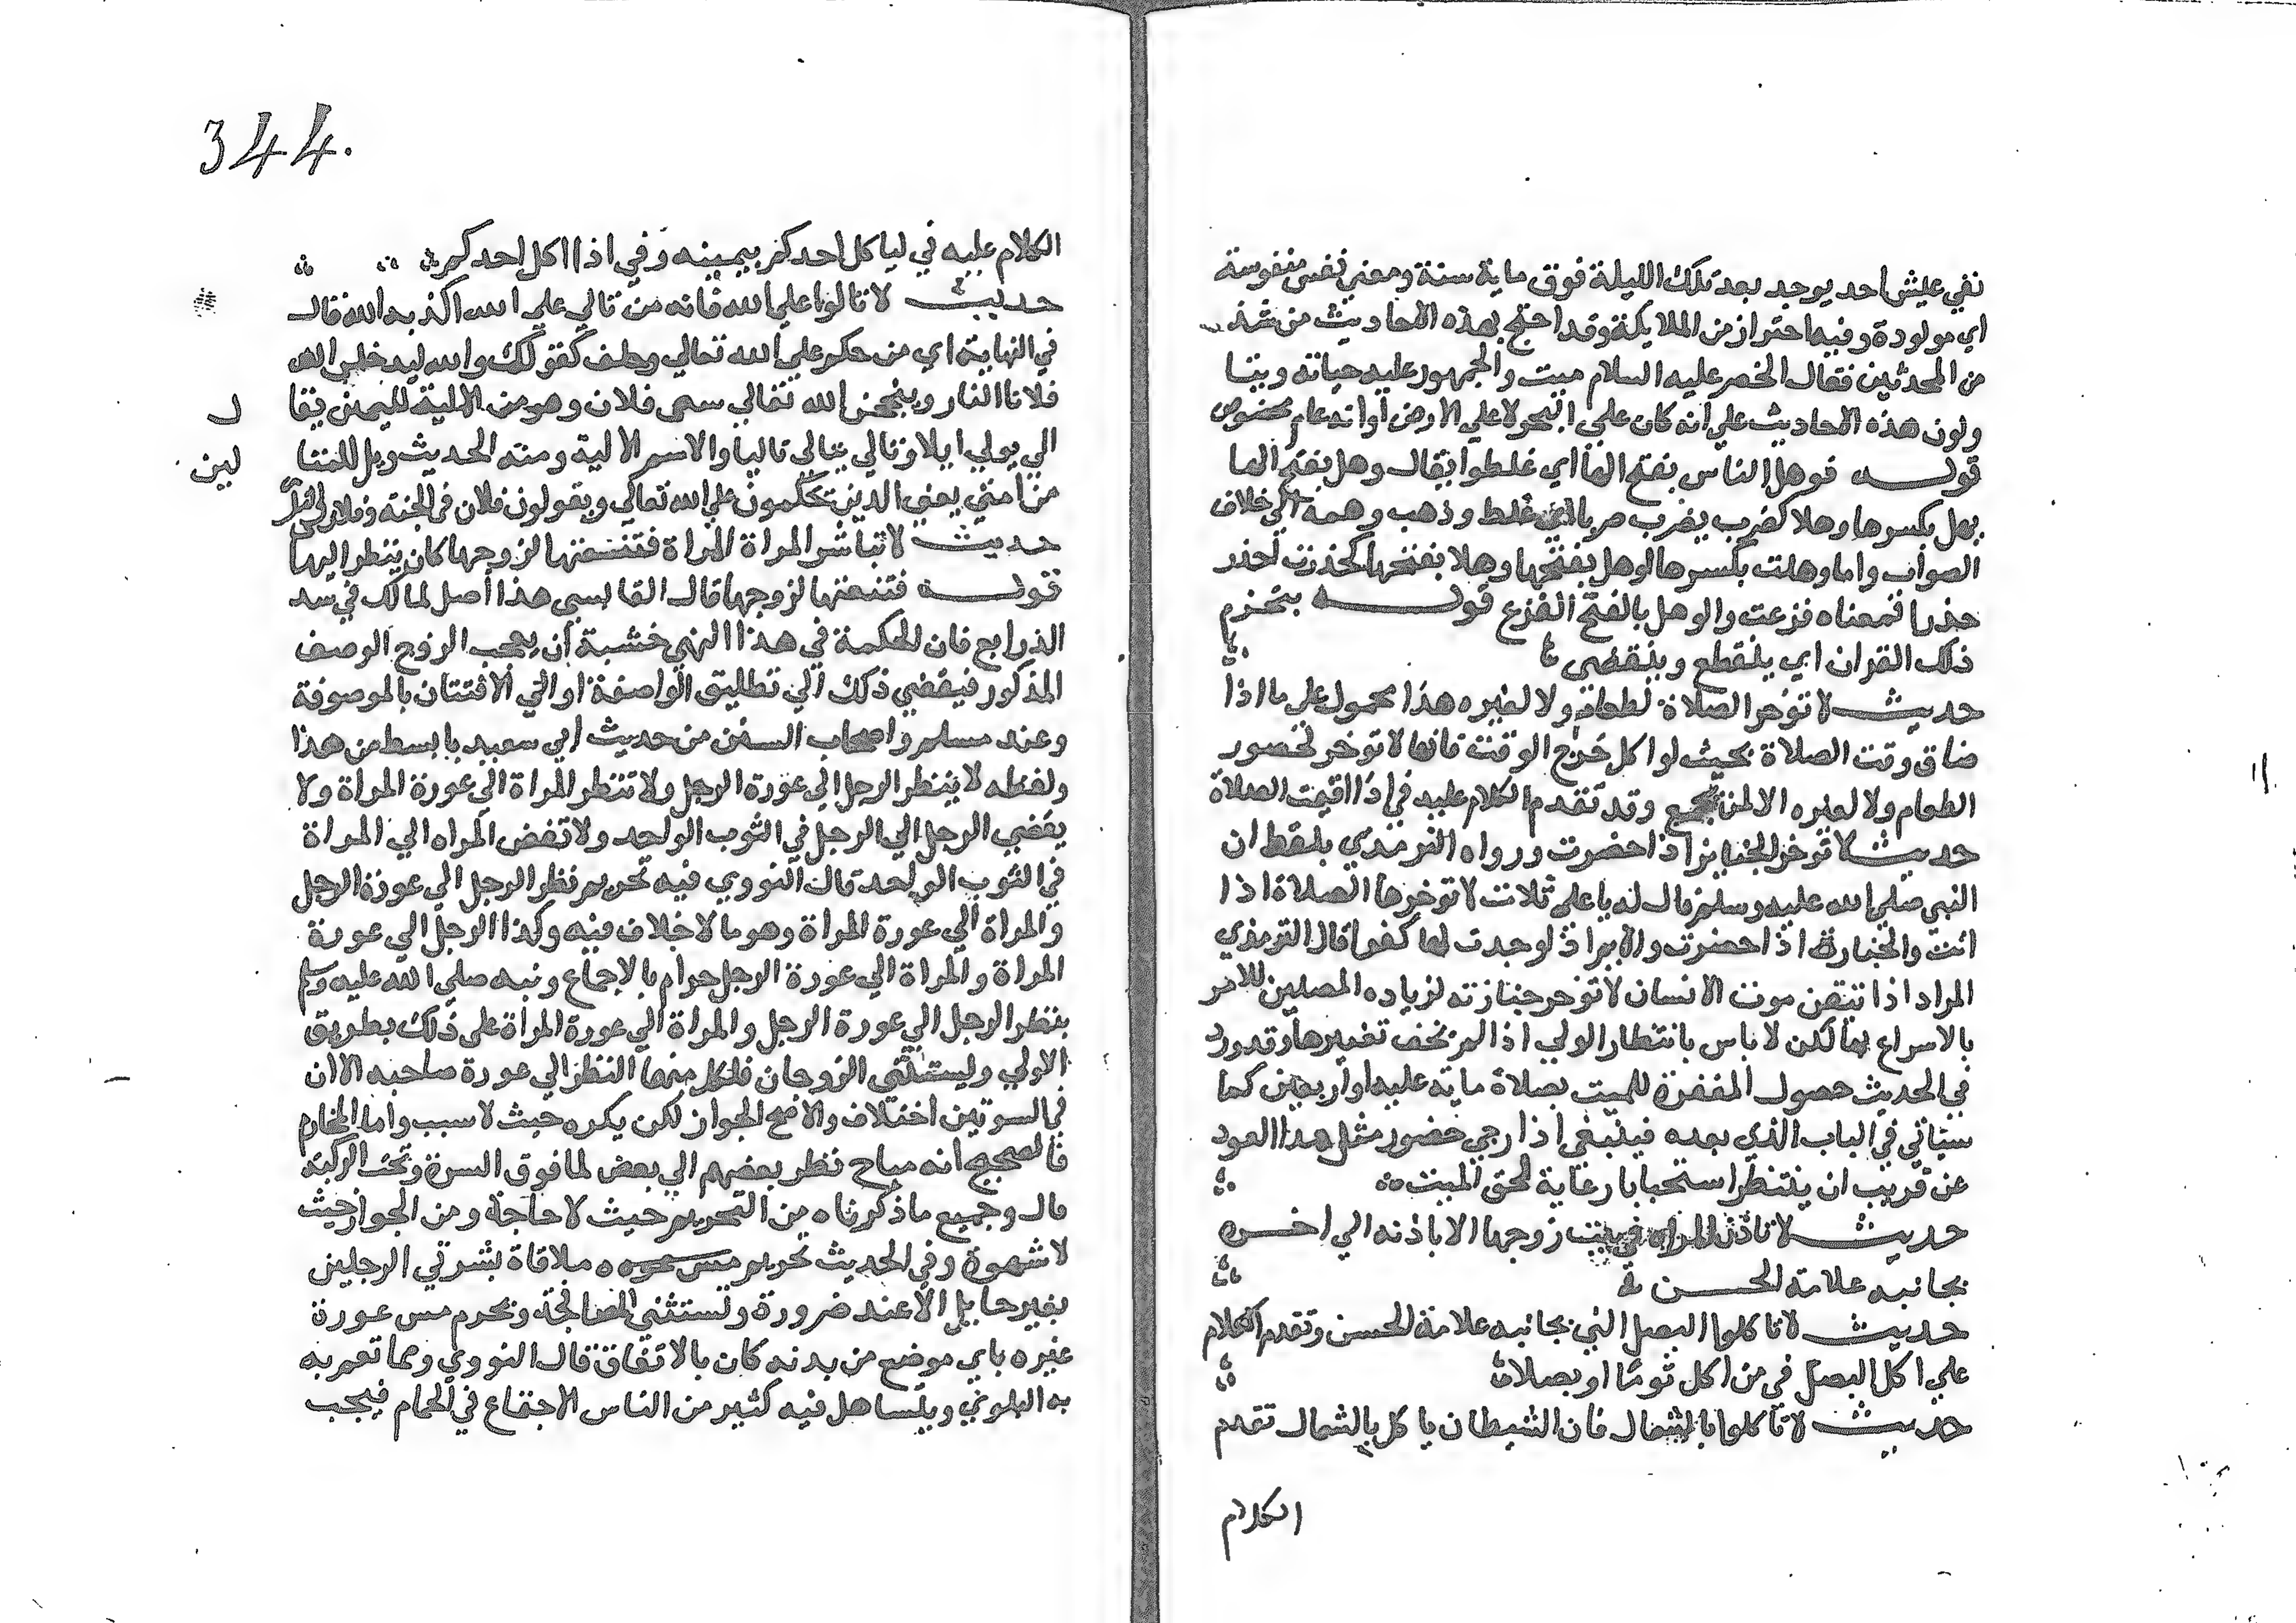 نفي عيش احد يوجد بعد تلك الليلة فوق ماية سنة ومعني نفس منفوسة
اي مولودة وفيه احتراز من الملايكة وقد احتج بهذه الاحاديث من شذ
من المحدثين فقال الخضر عليه السلام ميت والجمهور علي حياته ويتا
ولون هذه الاحاديث علي انه كان علي البحر لا علي الارض او انه عام مخصوص
قوله فوهل الناس بفتح الها اي غلطوا يقال وهل بفتح الها
يهل بكسرها وهلا كضرب يضرب ضربا اي غلط وذهب وهمه الي خلاف
الصواب واما وهلت بكسرها اوهل بفتحها وهلا بفتحها كحذرت احذر
حذرا فمعناه فزعت والوهل بالفتح الفزع قوله ينخرم
ذلك القران اي ينقطع وينقضي
حديث لا توخر الصلاة لطعام ولا لغيره هذا محمول علي ما اذا
ضاق وقت الصلاة بحيث لو اكل خرج الوقت فانها لا توخر لحضور
الطعام ولا لغيره الا لمن يجمع وقد تقدم الكلام عليه في اذا اقيمت الصلاة
حديث لا توخر الجنايز اذا حضرت ورواه الترمذي بلفظ ان
النبي صلي الله عليه وسلم قال له يا علي ثلاث لا توخرها الصلاة اذا
اتت والجنازة اذا حضرت والايم اذا وجدت لها كفوا قال الترمذي
المراد اذا تيقن موت الانسان لا توخر جنازته لزياده المصلين للامر
بالاسراع بها لكن لا باس بانتظار الولي اذا لم يخف تغيرها وقد ورد
في الحديث حصول المغفرة للميت بصلاة ماية عليه او اربعين كما
سياتي في الباب الذي بعده فينبغي اذا رجي حضور مثل هذا العدد
عن قريب ان ينتظر استحبابا رعاية لحق الميت
حديث لا تاذن المراه في بيت زوجها الا باذنه الي اخره
بجانبه علامة الحسن
حديث لا تاكلوا البصل الني بجانبه علامة الحسن وتقدم الكلام
علي اكل البصل في من اكل ثوما او بصلا
حديث لا تاكلوا بالشمال فان الشيطان ياكل بالشمال تقدم
الكلام
344.
الكلام عليه في لياكل احدكم بيمينه وفي اذا اكل احدكم
حديث لا تالوا علي الله فانه من تالي علي الله اكذبه الله قال
في النهاية اي من حكم علي الله تعالي وحلف كقولك والله ليدخلن الله
فلانا النار وينجحن الله تعالي سعي فلان وهو من الالية اليمين يقا
ل
الي يولي ايلا وتالي يتالي تاليا والاسم الالية ومنه الحديث ويل للمتا
لين
من امتي يعني الذين يحكمون علي الله تعالي ويقولون فلان في الجنة وفلان في النار
حديث لا تباشر المراة المراة فتنعتها لزوجها كان ينظر اليها
قوله فتنعتها لزوجها قال القابسي هذا اصل لمالك في سد
الذرايع فان الحكمة في هذا النهي خشية ان يعجب الزوج الوصف
المذكور فيفضي ذلك الي تطليق الواصفة او الي الافتتان بالموصوفة
وعند مسلم واصحاب السنن من حديث ابي سعيد بابسط من هذا
ولفظه لا ينظر الرجل الي عورة الرجل ولا تنظر المراة الي عورة المراة ولا
يفضي الرجل الي الرجل في الثوب الواحد ولا تفض المراه الي المراة
في الثوب الواحد قال النووي فيه تحريم نظر الرجل الي عورة الرجل
والمراة الي عورة المراة وهو ما لا خلاف فيه وكذا الرجل الي عورة
المراة والمراة الي عورة الرجل حرام بالاجماع ونبه صلي الله عليه وسلم
بنظر الرجل الي عورة الرجل والمراة الي عورة المراة علي ذلك بطريق
الاولي ويستثني الزوجان فلكل منهما النظر الي عورة صاحبه الا ان
في السوتين اختلاف والاصح الجواز لكن يكره حيث لا سبب واما المحارم
فالصحيح انه مباح نظر بعضهم الي بعض لما فوق السرة وتحت الركبة
قال وجميع ما ذكرناه من التحريم حيث لا حاجة ومن الجواز حيث
لا شهوة وفي الحديث تحريم ملاقاة بشرتي الرجلين
بغير حايل الا عند ضرورة وتستثني المصافحة ويحرم مس عورة
غيره باي موضع من بدنه كان بالاتفاق قال النووي ومما تعم به
به البلوي ويتساهل فيه كثير من الناس الاجتماع في الحمام فيجب